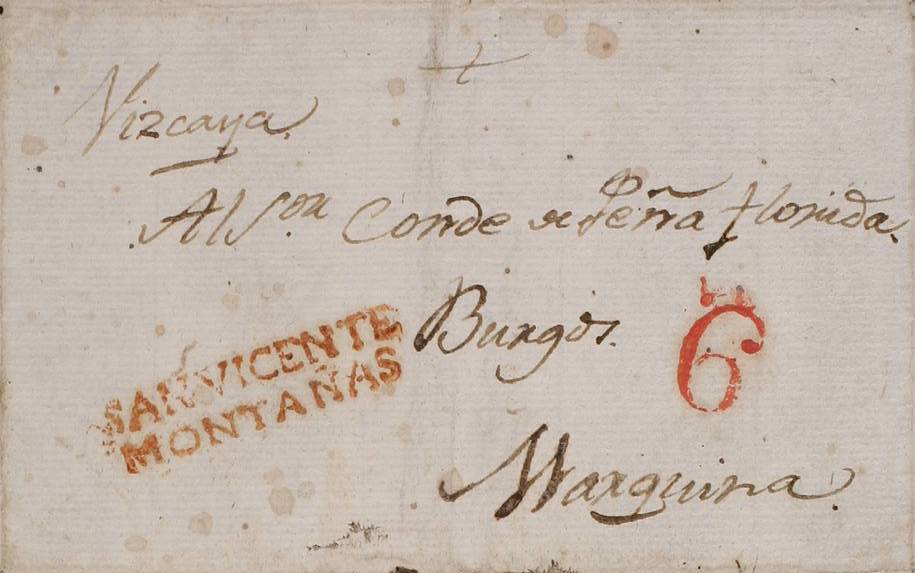 Vizcaya.
Al S.or Conde de Peña florida.
Burgos.
6
SAN VICENTE
MONTAÑAS
Marquina.